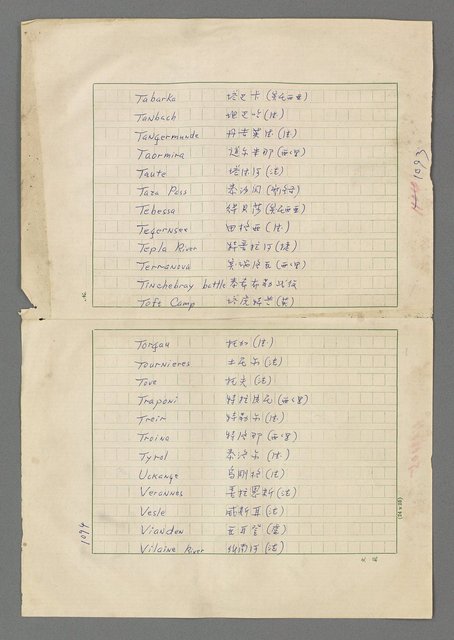 Tabarka 塔巴卡(突尼西亞)
Tanbach 坦巴哈(德)
Tangermunde 丹吉美德(德)
Taormira 道尔米那(西里)
Taute 塔德河(法)
Taza Pass 泰沙関
Tebessa 特貝莎(突尼西亞)
Tegernsee (德)
Tepla River 特普拉河(捷)
Terranova (西里)
Tinchebray battle 戰役
Toft Camp (英)
1093
Torgau 托加(德)
Tournieres 土尼尔(法)
Tove 托夫(法)
Traponi 特拉波尼(西里)
Treir 特勒尔(德)
Troina 特洛那(西里)
Tyrol 泰洛尔(德)
Uckange 烏剛格(法)
Verannes 畏拉恩斯(法)
Vesle 威斯耳(法)
Vianden 瓦耳登(盧)
Vilaine River 維南河(法)
1094
(24 x 25)